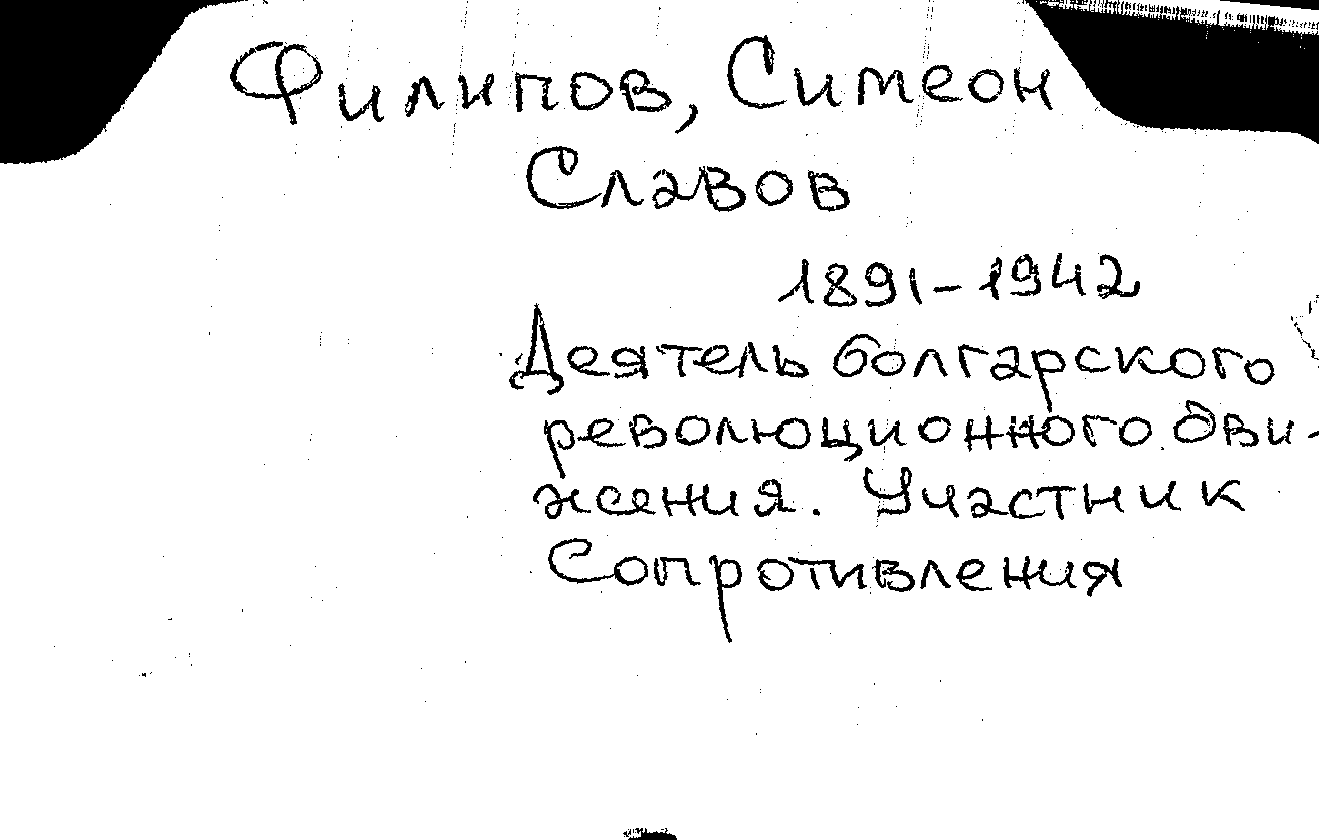 Филипов, Симеон
Славов
1891-1942
Деятель болгарского
революционного дви-
жения. Участник
Сопротивления